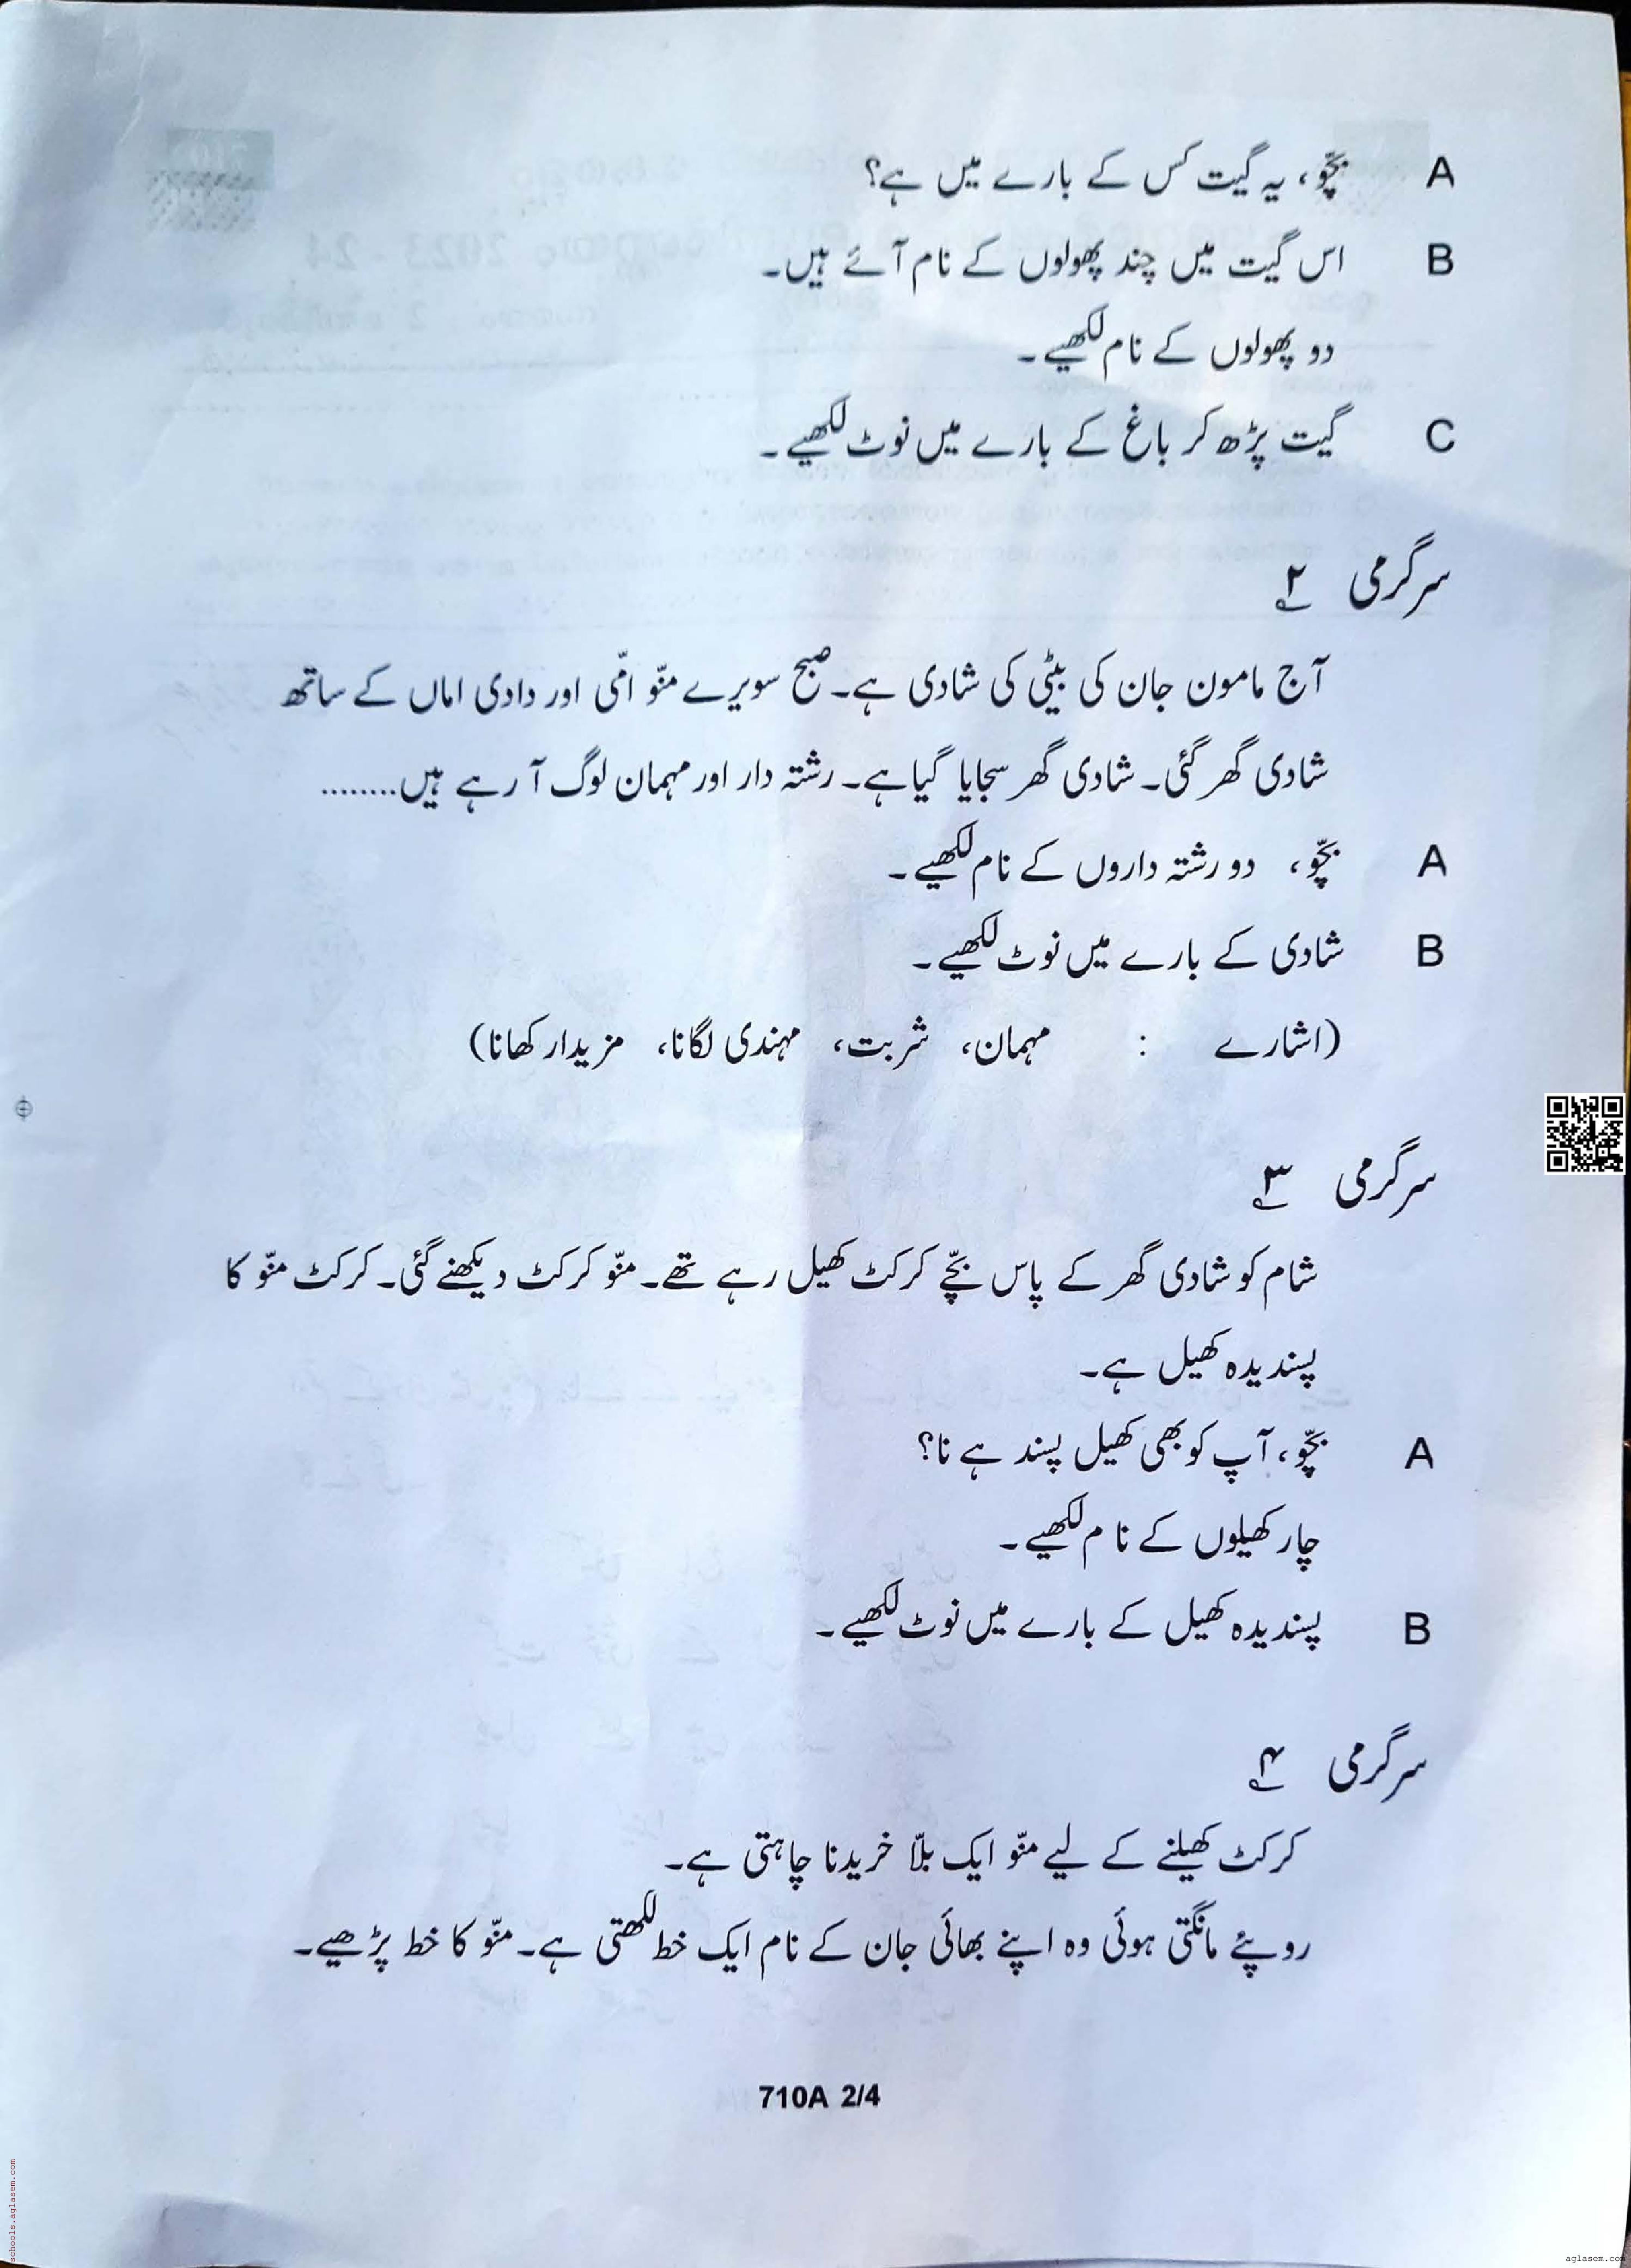 A بچّو، یہ گیت کس کے بارے میں ہے؟
B اس گیت میں چند پھولوں کے نام آئے ہیں۔
دو پھولوں کے نام لکھیے۔
C گیت پڑھ کر باغ کے بارے میں نوٹ لکھیے۔
سرگرمی ۲؎
آج مامون جان کی بیٹی کی شادی ہے۔ صبح سویرے منّو امّی اور دادی اماں کے ساتھ
شادی گھر گئی۔ شادی گھر سجایا گیا ہے۔ رشتہ دار اور مہمان لوگ آ رہے ہیں........
A بچّو، دو رشتہ داروں کے نام لکھیے۔
B شادی کے بارے میں نوٹ لکھیے۔
(اشارے : مہمان، شربت، مہندی لگانا، مزیدار کھانا)
سرگرمی ۳؎
شام کو شادی گھر کے پاس بچّے کرکٹ کھیل رہے تھے۔ منّو کرکٹ دیکھنے گئی۔ کرکٹ منّو کا
پسندیدہ کھیل ہے۔
A بچّو، آپ کو بھی کھیل پسند ہے نا؟
چار کھیلوں کے نام لکھیے۔
B پسندیدہ کھیل کے بارے میں نوٹ لکھیے۔
سرگرمی ۴؎
کرکٹ کھیلنے کے لیے منّو ایک بلّا خریدنا چاہتی ہے۔
روپئے مانگتی ہوئی وہ اپنے بھائی جان کے نام ایک خط لکھتی ہے۔ منّو کا خط پڑھیے۔
710A 2/4
schools.aglasem.com
aglasem.com